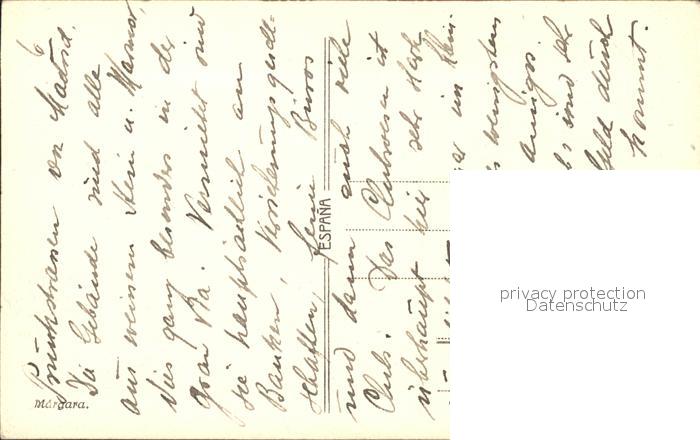 6
Prunkstrassen von Madrid.
Die Gebäude sind alle
aus weissem Stein u. Marmor,
dies ganz besonders in der
Gran Via. Vermietet sind
sie hauptsächlich an
Banken, Versicherungsgesell-
schaften, Büros
und dann auch viele
Clubs. Das Clubwesen ist
überhaupt hier sehr stark
im
wenigstens
amigos.
sind sehr
Geld durch
kommt.
ESPAÑA
Márgara.
privacy protection
Datenschutz